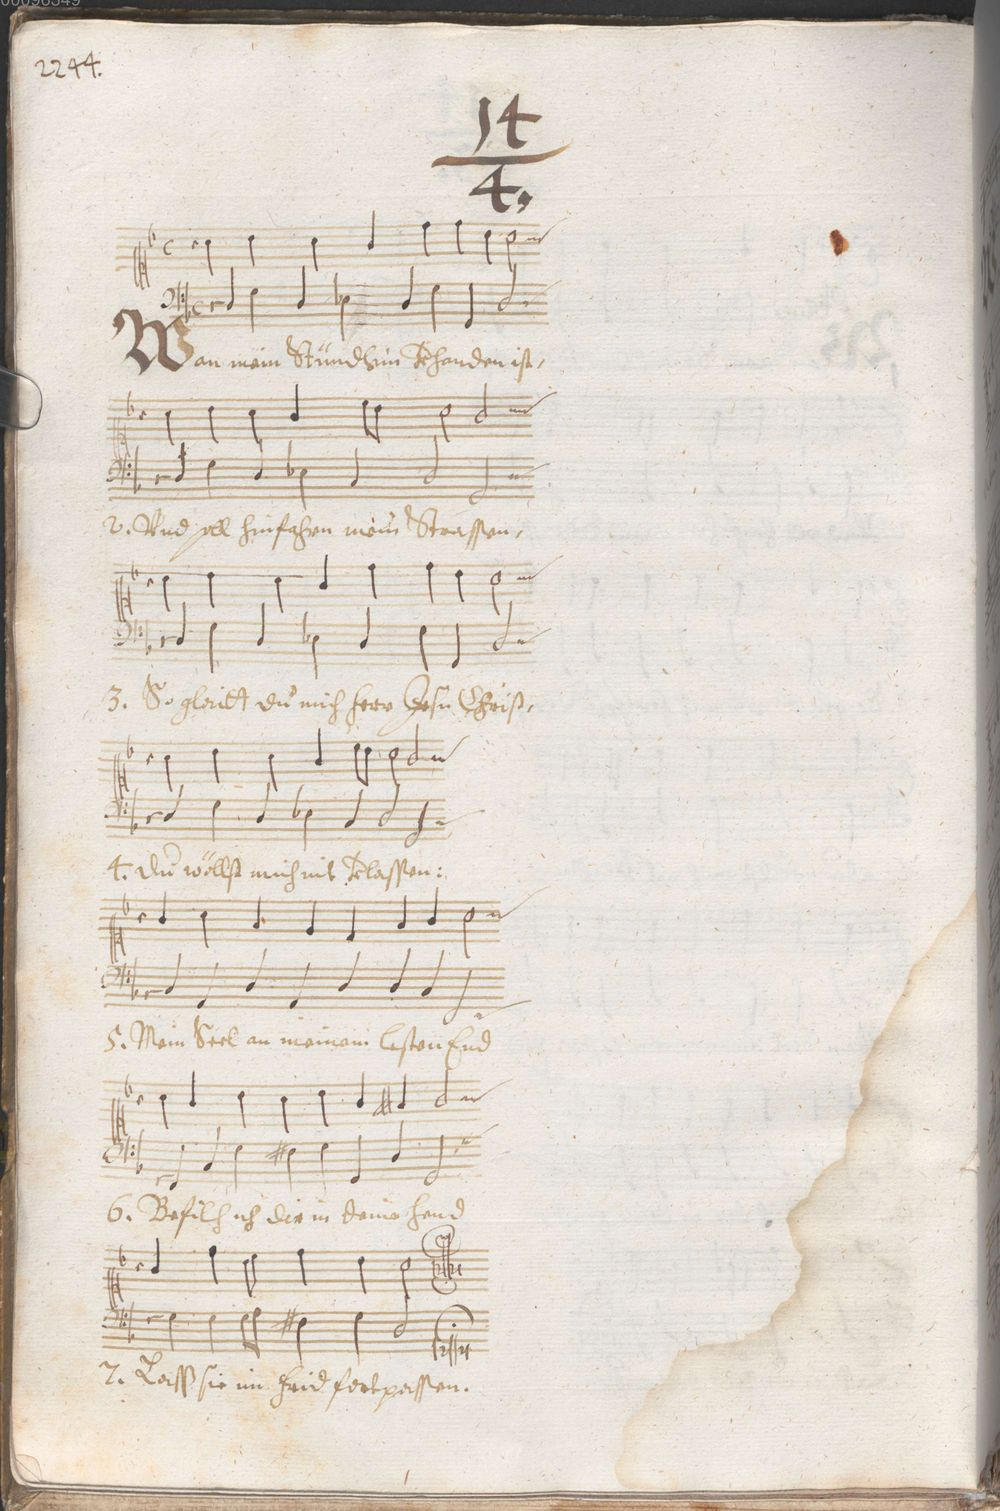 00096549
2244.
14
4.
Wan mein Stündlein Vohanden ist,
2. Und soll hinfahren mein Strassen,
3. So glaidt du mich Herr Jesu Christ,
4. du wöllst mich nit Velassen:
5. Mein Seel an meinem lesten End
6. Befilch ich dir in deine Hend
7. Lass sie im Frid fortpassen.